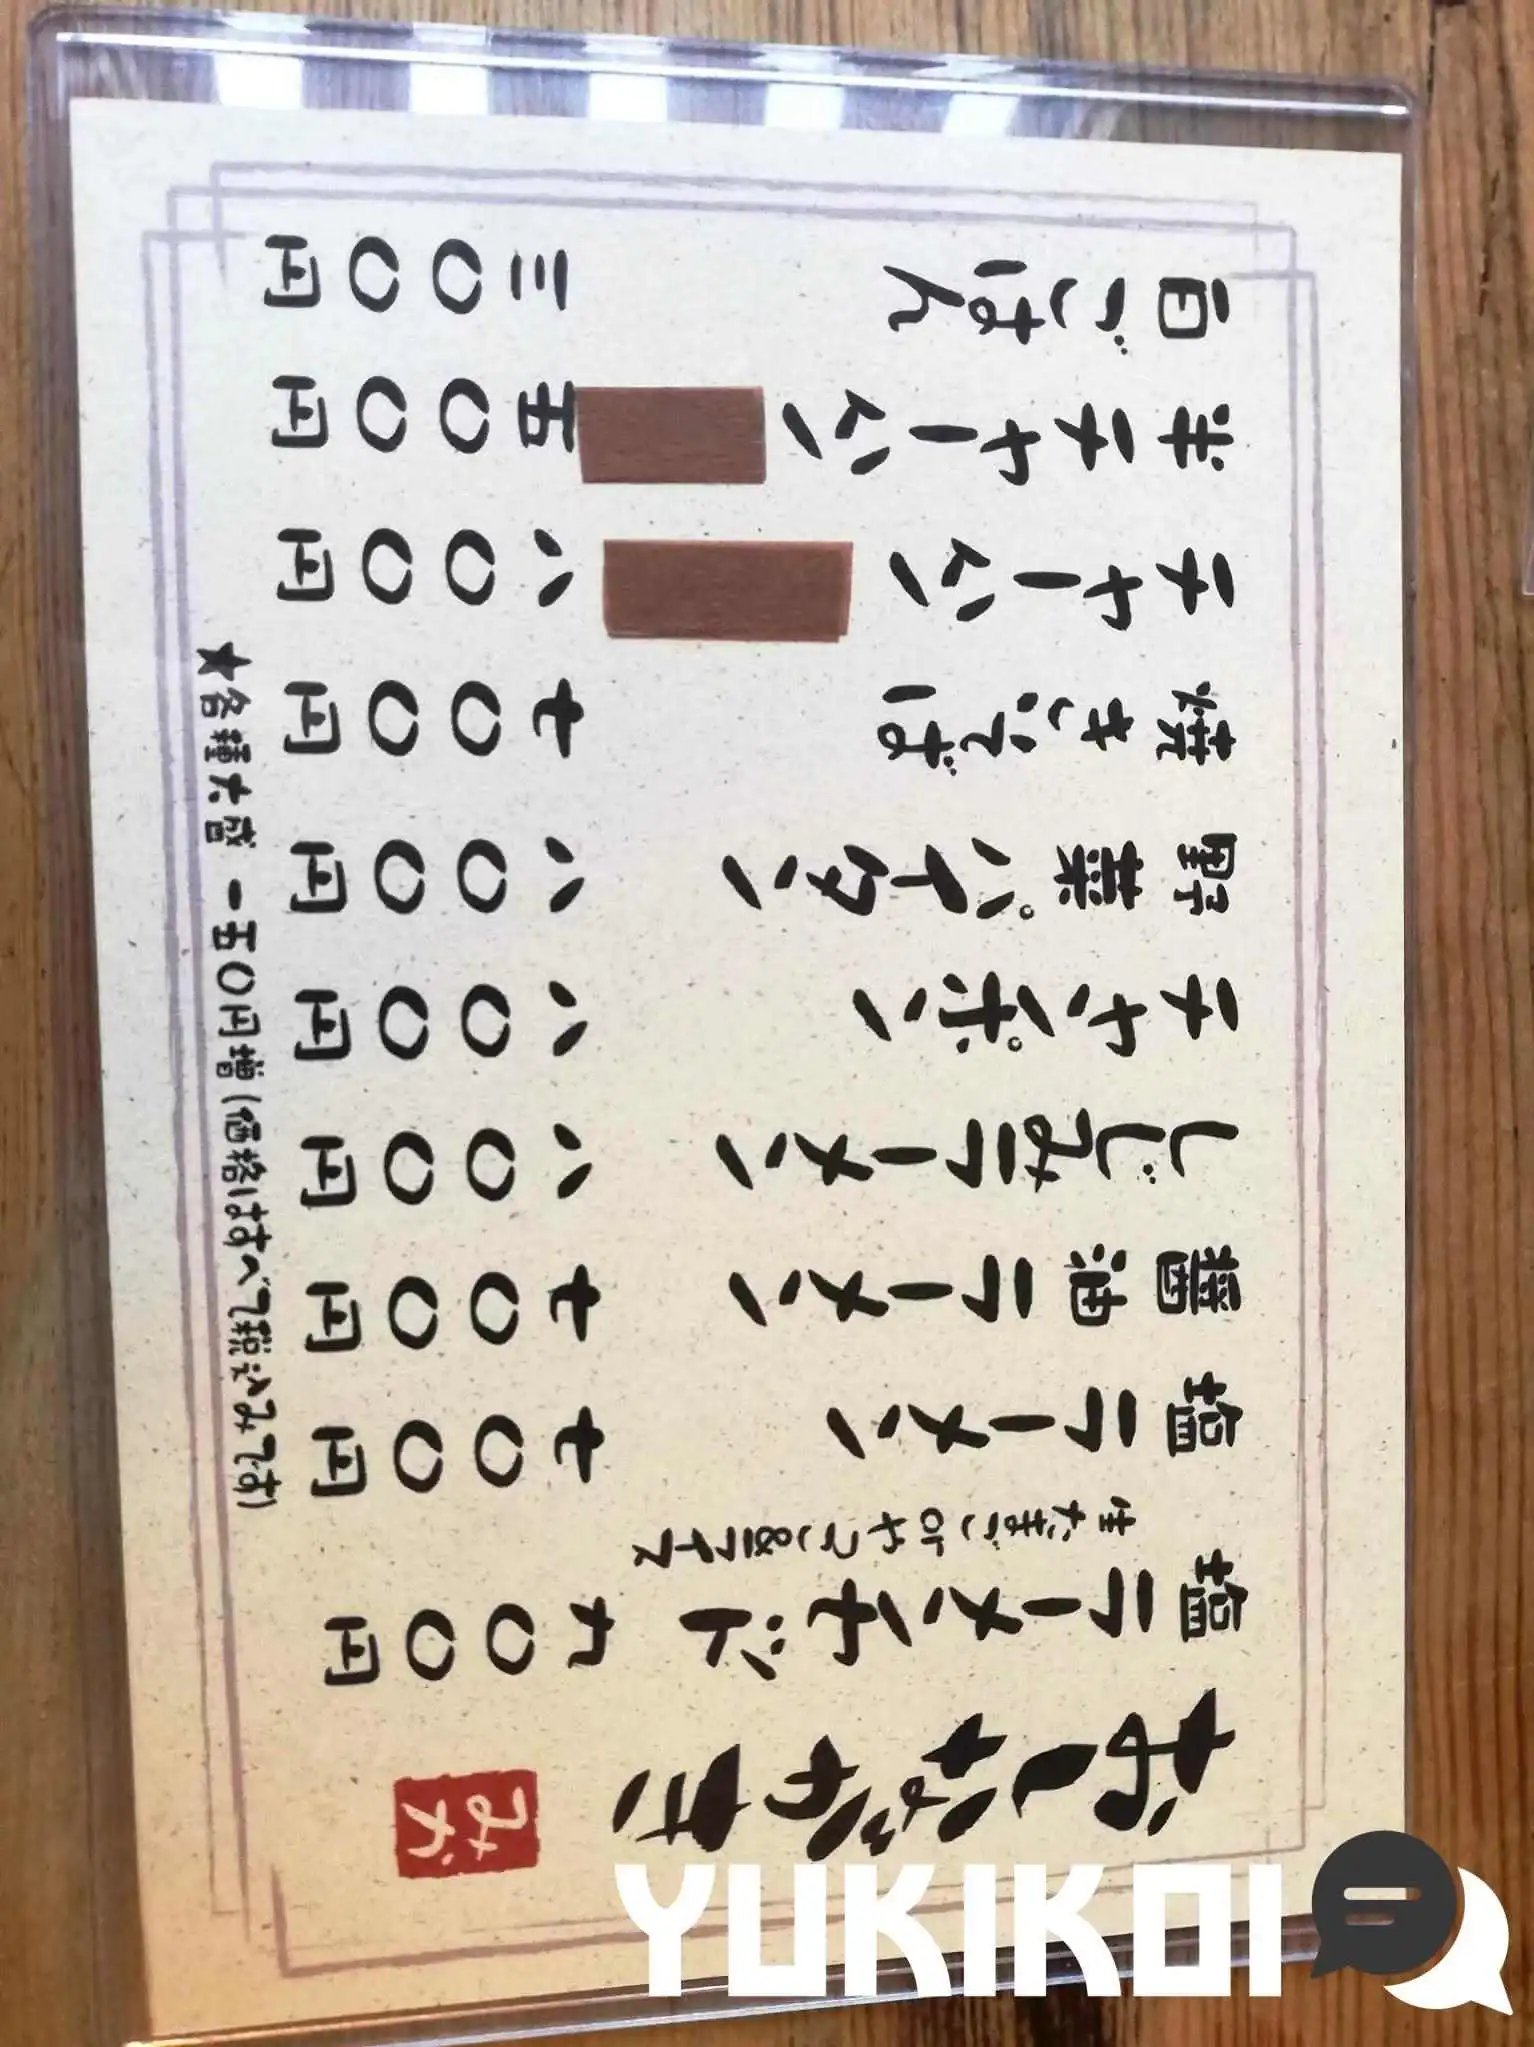 おしながき
みんみ
塩ラーメンセット 九〇〇円
生たまご or やっこ&ライス
塩ラーメン 七〇〇円
醤油ラーメン 七〇〇円
しじみラーメン 八〇〇円
チャンポン 八〇〇円
野菜パイタン 八〇〇円
焼きそば 七〇〇円
チャーハン 八〇〇円
半チャーハン 五〇〇円
白ごはん 三〇〇円
★各種大盛 一五〇円増(価格はすべて税込みです)
YUKIKOI